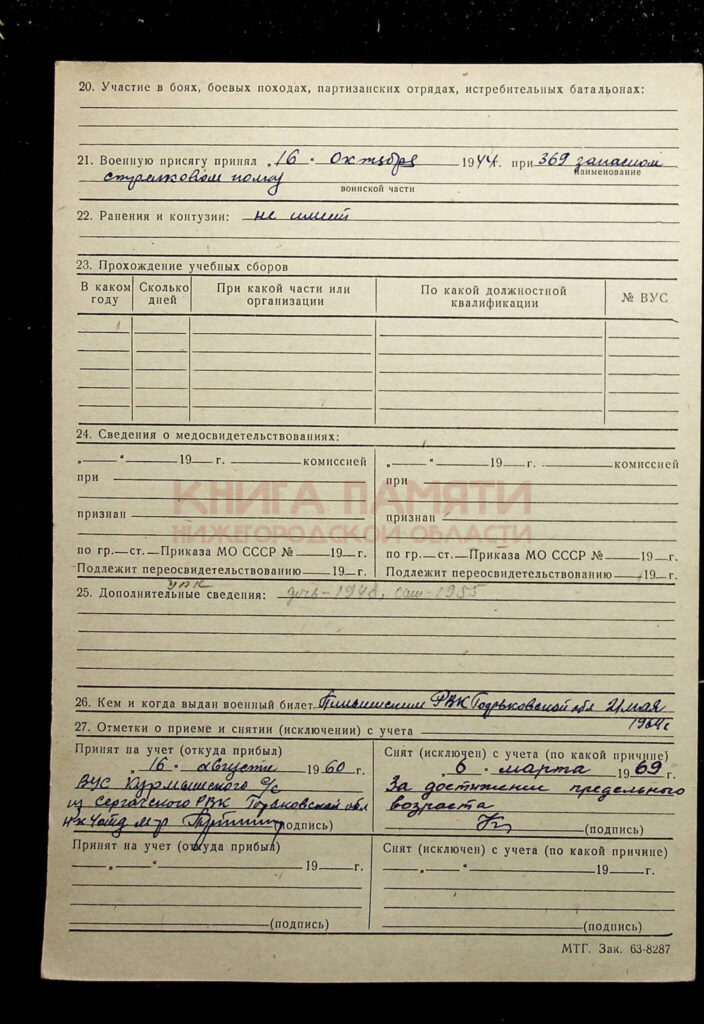 20. Участие в боях, боевых походах, партизанских отрядах, истребительных батальонах:
21. Военную присягу принял „16 " октября 1944 г. при 369 запасном
наименование
стрелковом полку
воинской части
22. Ранения и контузии: не имеет
23. Прохождение учебных сборов
В каком году | Сколько дней | При какой части или организации | По какой должностной квалификации | № ВУС
24. Сведения о медосвидетельствованиях:
„—" —19—г. —комиссией „—" —19—г. —комиссией
при при
КНИГА ПАМЯТИ
признан признан
НИЖЕГОРОДСКОЙ ОБЛАСТИ
по гр.—ст.—Приказа МО СССР №—19—г. по гр.—ст.—Приказа МО СССР №—19—г.
Подлежит переосвидетельствованию—19—г. Подлежит переосвидетельствованию—19—г.
25. Дополнительные сведения: дочь-1948, сын-1955
26. Кем и когда выдан военный билет Пильнинским РВК Горьковской обл 21 мая
1964г
27. Отметки о приеме и снятии (исключении) с учета
Принят на учет (откуда прибыл) Снят (исключен) с учета (по какой причине)
„16" августа 1960 г. „6" марта 1969 г.
ВУС Курмышского с/с За достижении предельного
из Сергачского РВК Горьковской обл возраста
(подпись) (подпись)
Принят на учет (откуда прибыл) Снят (исключен) с учета (по какой причине)
—„—" —19—г. —„—" —19—г.
(подпись) (подпись)
МТГ. Зак. 63-8287